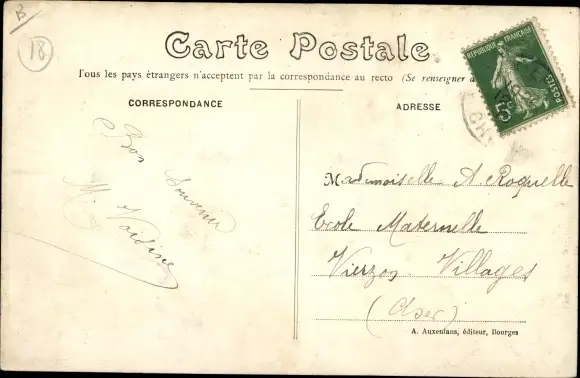 B
18
Carte Postale
Tous les pays étrangers n'acceptent par la correspondance au recto (Se renseigner à
CORRESPONDANCE
ADRESSE
REPUBLIQUE FRANÇAISE
POSTES
5c
Bon
Souvenir
M Voidine
Mademoiselle A Roquelle
Ecole Maternelle
Vierzon Villages
(Cher)
A. Auxenfans, éditeur, Bourges